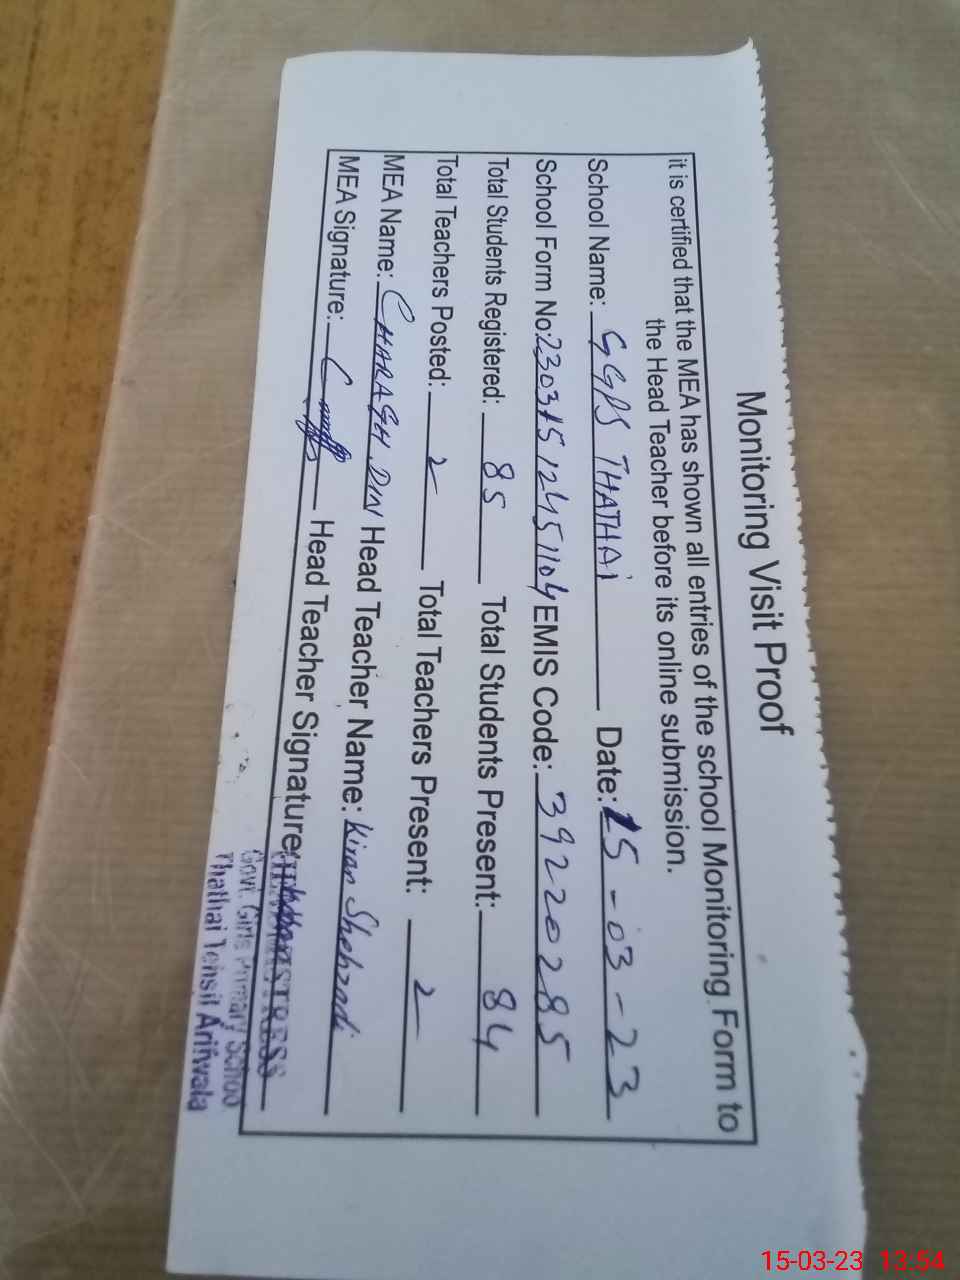 Monitoring Visit Proof
it is certified that the MEA has shown all entries of the school Monitoring Form to
the Head Teacher before its online submission.
School Name: GGPS THATHAI Date: 15-03-23
School Form No: EMIS Code: 39220285
Total Students Registered: 85 Total Students Present: 84
Total Teachers Posted: 2 Total Teachers Present: 2
MEA Name: CHARAGH DIN Head Teacher Name: Kiran Shehzadi
MEA Signature: Head Teacher Signature:
Govt. Girls Primary School
Thathai Tehsil Arifwala
15-03-23 13:54